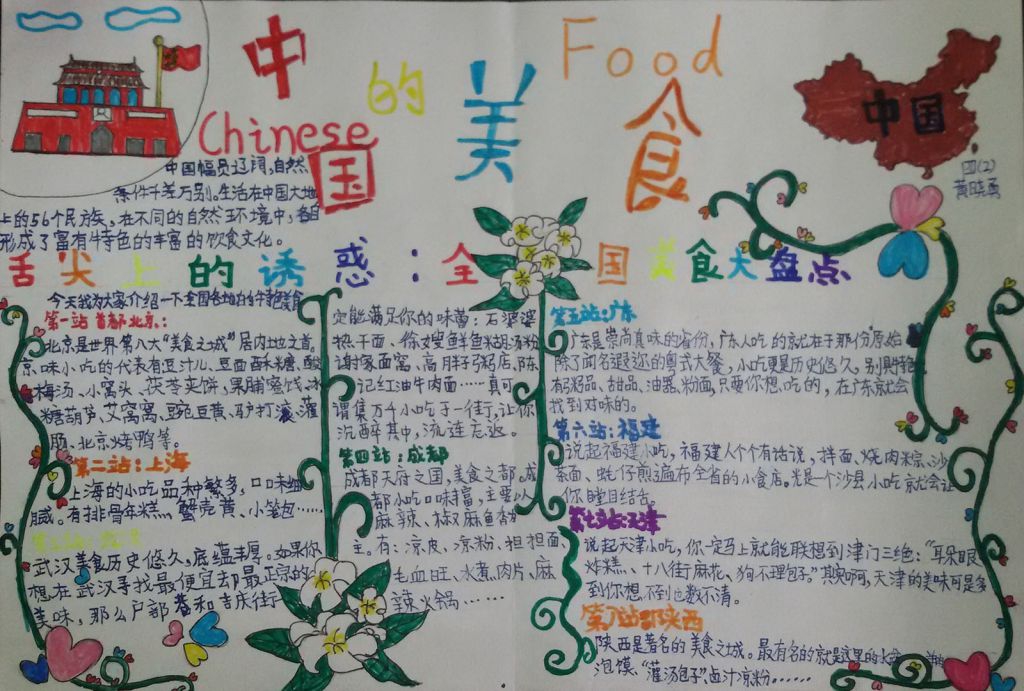 中国的美食
Chinese
Food
中国
四(2)
中国幅员辽阔,自然
条件千差万别。生活在中国大地
上的56个民族,在不同的自然环境中,各自
形成了富有特色的丰富的饮食文化。
舌尖上的诱惑:全国美食大盘点
今天我为大家介绍一下全国各地的特色美食
第一站 首都北京:
北京是世界第八大"美食之城"居内地之首。
京味小吃的代表有豆汁儿、豆面酥糖、酸
梅汤、小窝头、茯苓夹饼、果脯蜜饯、冰
糖葫芦、艾窝窝、豌豆黄、驴打滚、灌
肠、北京烤鸭等。
第二站:上海
上海的小吃品种繁多,口味细
腻。有排骨年糕、蟹壳黄、小笼包……
第三站:武汉
武汉美食历史悠久,底蕴丰厚。如果你
想在武汉寻找最便宜却最正宗的
美味,那么户部巷和吉庆街
定能满足你的味蕾:石婆婆
热干面、徐嫂鲜鱼糊汤粉
谢家面窝、高胖子粥店、陈
记红油牛肉面……真可
谓集万千小吃于一街,让你
沉醉其中,流连忘返。
第四站:成都
成都天府之国,美食之都。成
都小吃口味丰富,主要以
麻辣、椒麻鱼香
主。有:凉皮、凉粉、担担面
毛血旺、水煮肉片、麻
辣火锅……
第五站:广东
广东是崇尚真味的省份,广东人吃的就在于那份原始
除了闻名遐迩的粤式大餐,小吃更是历史悠久,别具
有粥品、甜品、油器、粉面,只要你想吃的,在广东就会
找到对味的。
第六站:福建
说起福建小吃,福建人个个有话说,拌面、烧肉粽、沙
茶面、蚝仔煎遍布全省的小食店。光是一个沙县小吃就会让
你瞠目结舌。
第七站:天津
说起天津小吃,你一定马上就能联想到津门三绝:"耳朵眼
炸糕、十八街麻花、狗不理包子。"其实啊,天津的美味可是多
到你想不到也数不清。
陕西
陕西是著名的美食之城。最有名的就是这里的
泡馍、"灌汤包子"卤汁凉粉……